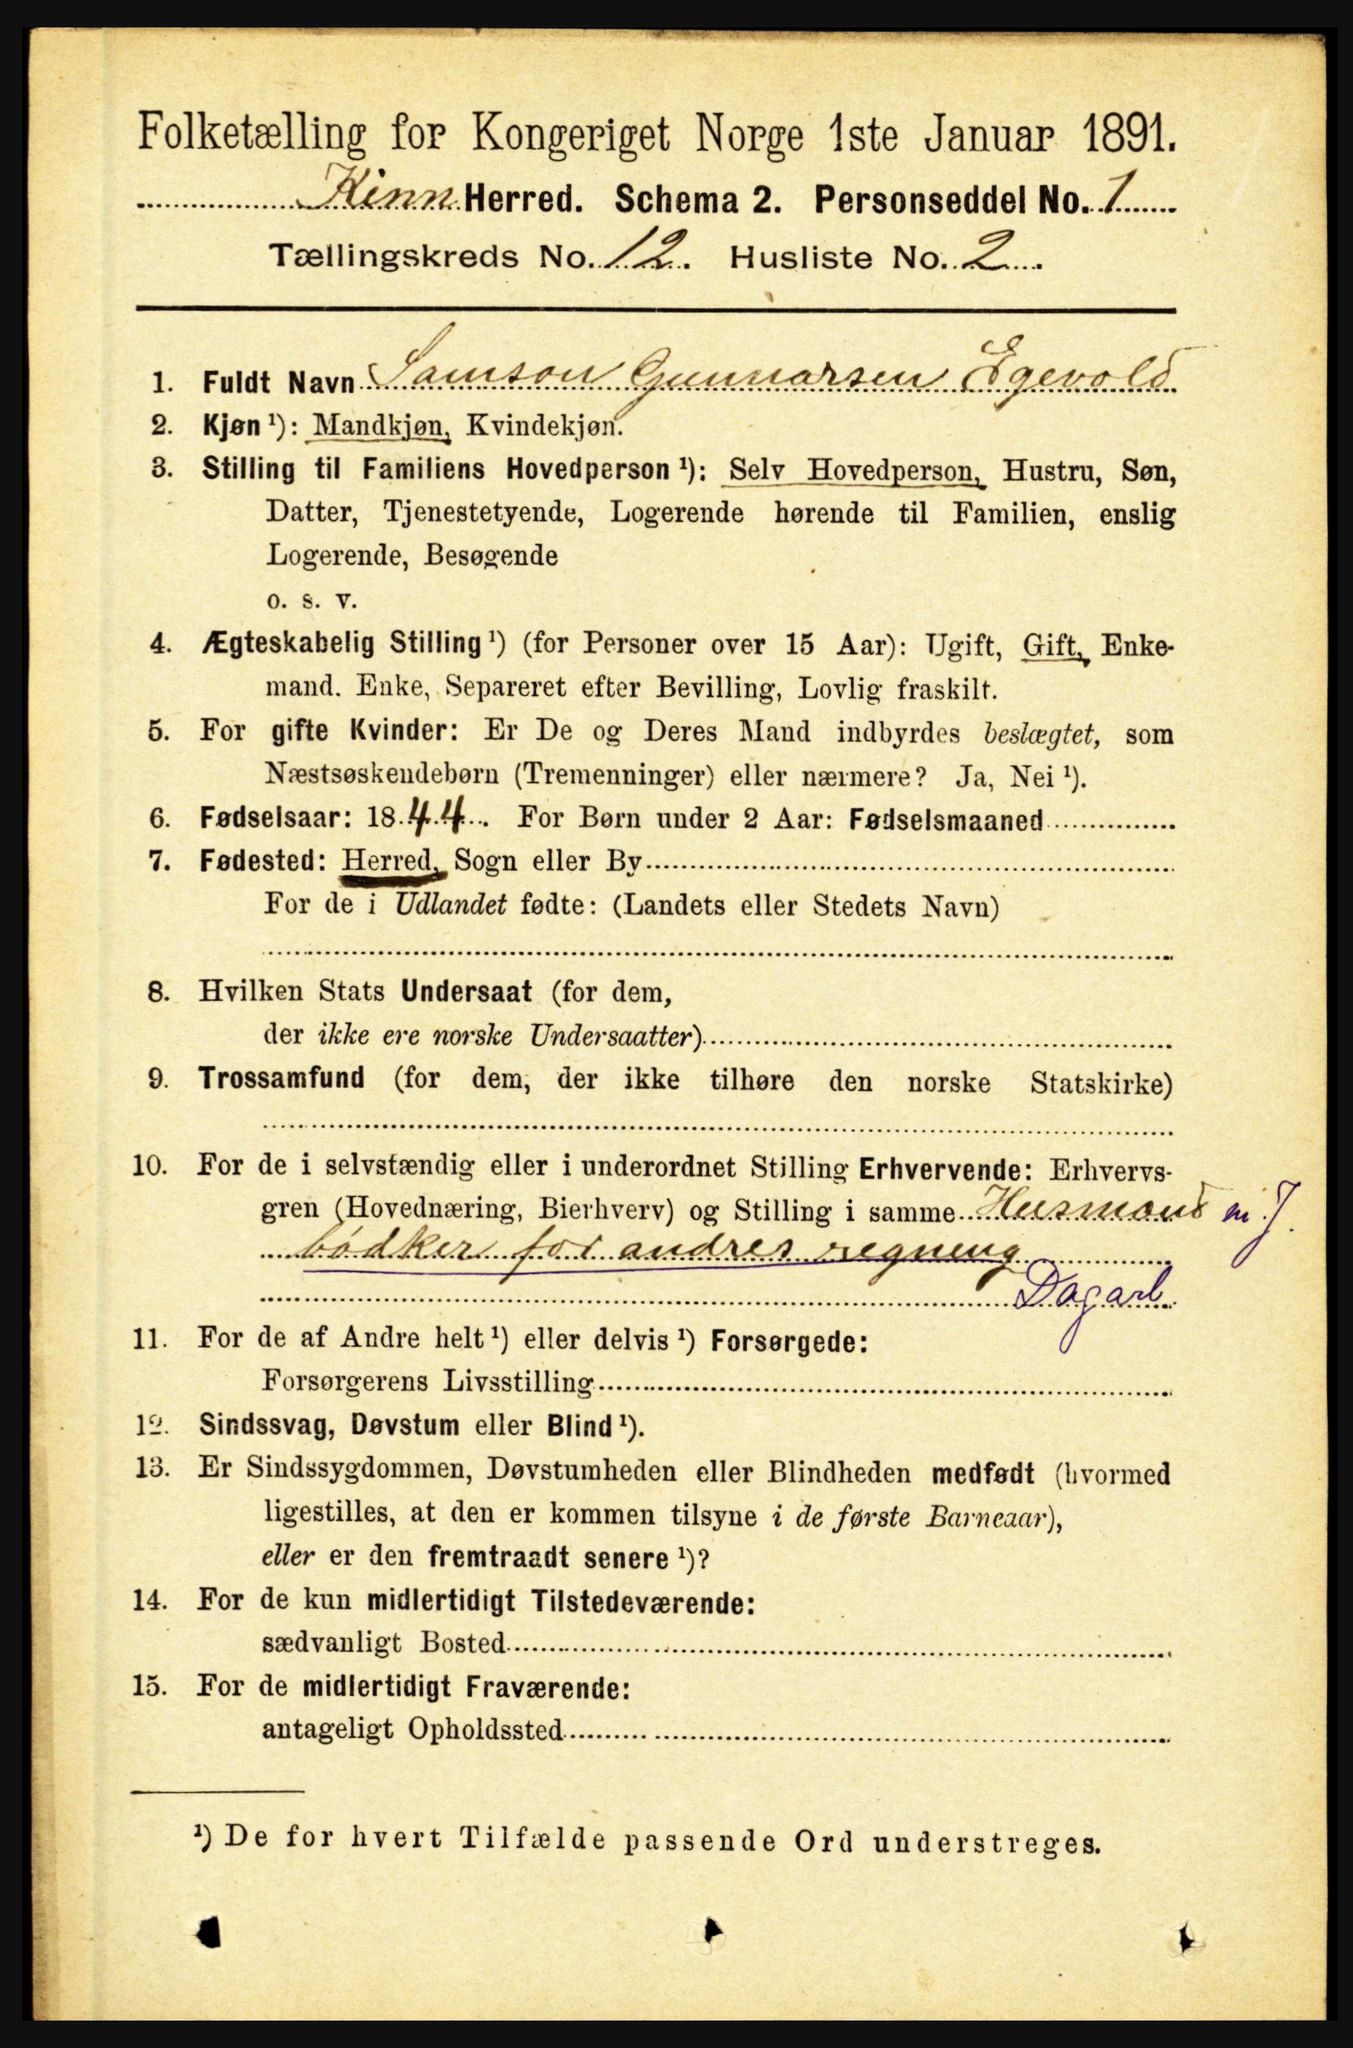 Folketælling for Kongeriget Norge 1ste Januar 1891.
Kinn Herred. Schema 2. Personseddel No. 1
Tællingskreds No. 12. Husliste No. 2
1. Fuldt Navn Samson Gunnarsen Egevold
2. Kjøn ¹): Mandkjøn, Kvindekjøn.
3. Stilling til Familiens Hovedperson ¹): Selv Hovedperson, Hustru, Søn,
Datter, Tjenestetyende, Logerende hørende til Familien, enslig
Logerende, Besøgende
o. s. v.
4. Ægteskabelig Stilling ¹) (for Personer over 15 Aar): Ugift, Gift, Enke-
mand. Enke, Separeret efter Bevilling, Lovlig fraskilt.
5. For gifte Kvinder: Er De og Deres Mand indbyrdes beslægtet, som
Næstsøskendebørn (Tremenninger) eller nærmere? Ja, Nei ¹).
6. Fødselsaar: 1844. For Børn under 2 Aar: Fødselsmaaned
7. Fødested: Herred, Sogn eller By
For de i Udlandet fødte: (Landets eller Stedets Navn)
8. Hvilken Stats Undersaat (for dem,
der ikke ere norske Undersaatter)
9. Trossamfund (for dem, der ikke tilhøre den norske Statskirke)
10. For de i selvstændig eller i underordnet Stilling Erhvervende: Erhvervs-
gren (Hovednæring, Bierhverv) og Stilling i samme Husmand m. J.
bødker for andres regning
Dagarb
11. For de af Andre helt ¹) eller delvis ¹) Forsørgede:
Forsørgerens Livsstilling
12. Sindssvag, Døvstum eller Blind ¹).
13. Er Sindssygdommen, Døvstumheden eller Blindheden medfødt (hvormed
ligestilles, at den er kommen tilsyne i de første Barneaar),
eller er den fremtraadt senere ¹)?
14. For de kun midlertidigt Tilstedeværende:
sædvanligt Bosted
15. For de midlertidigt Fraværende:
antageligt Opholdssted
¹) De for hvert Tilfælde passende Ord understreges.